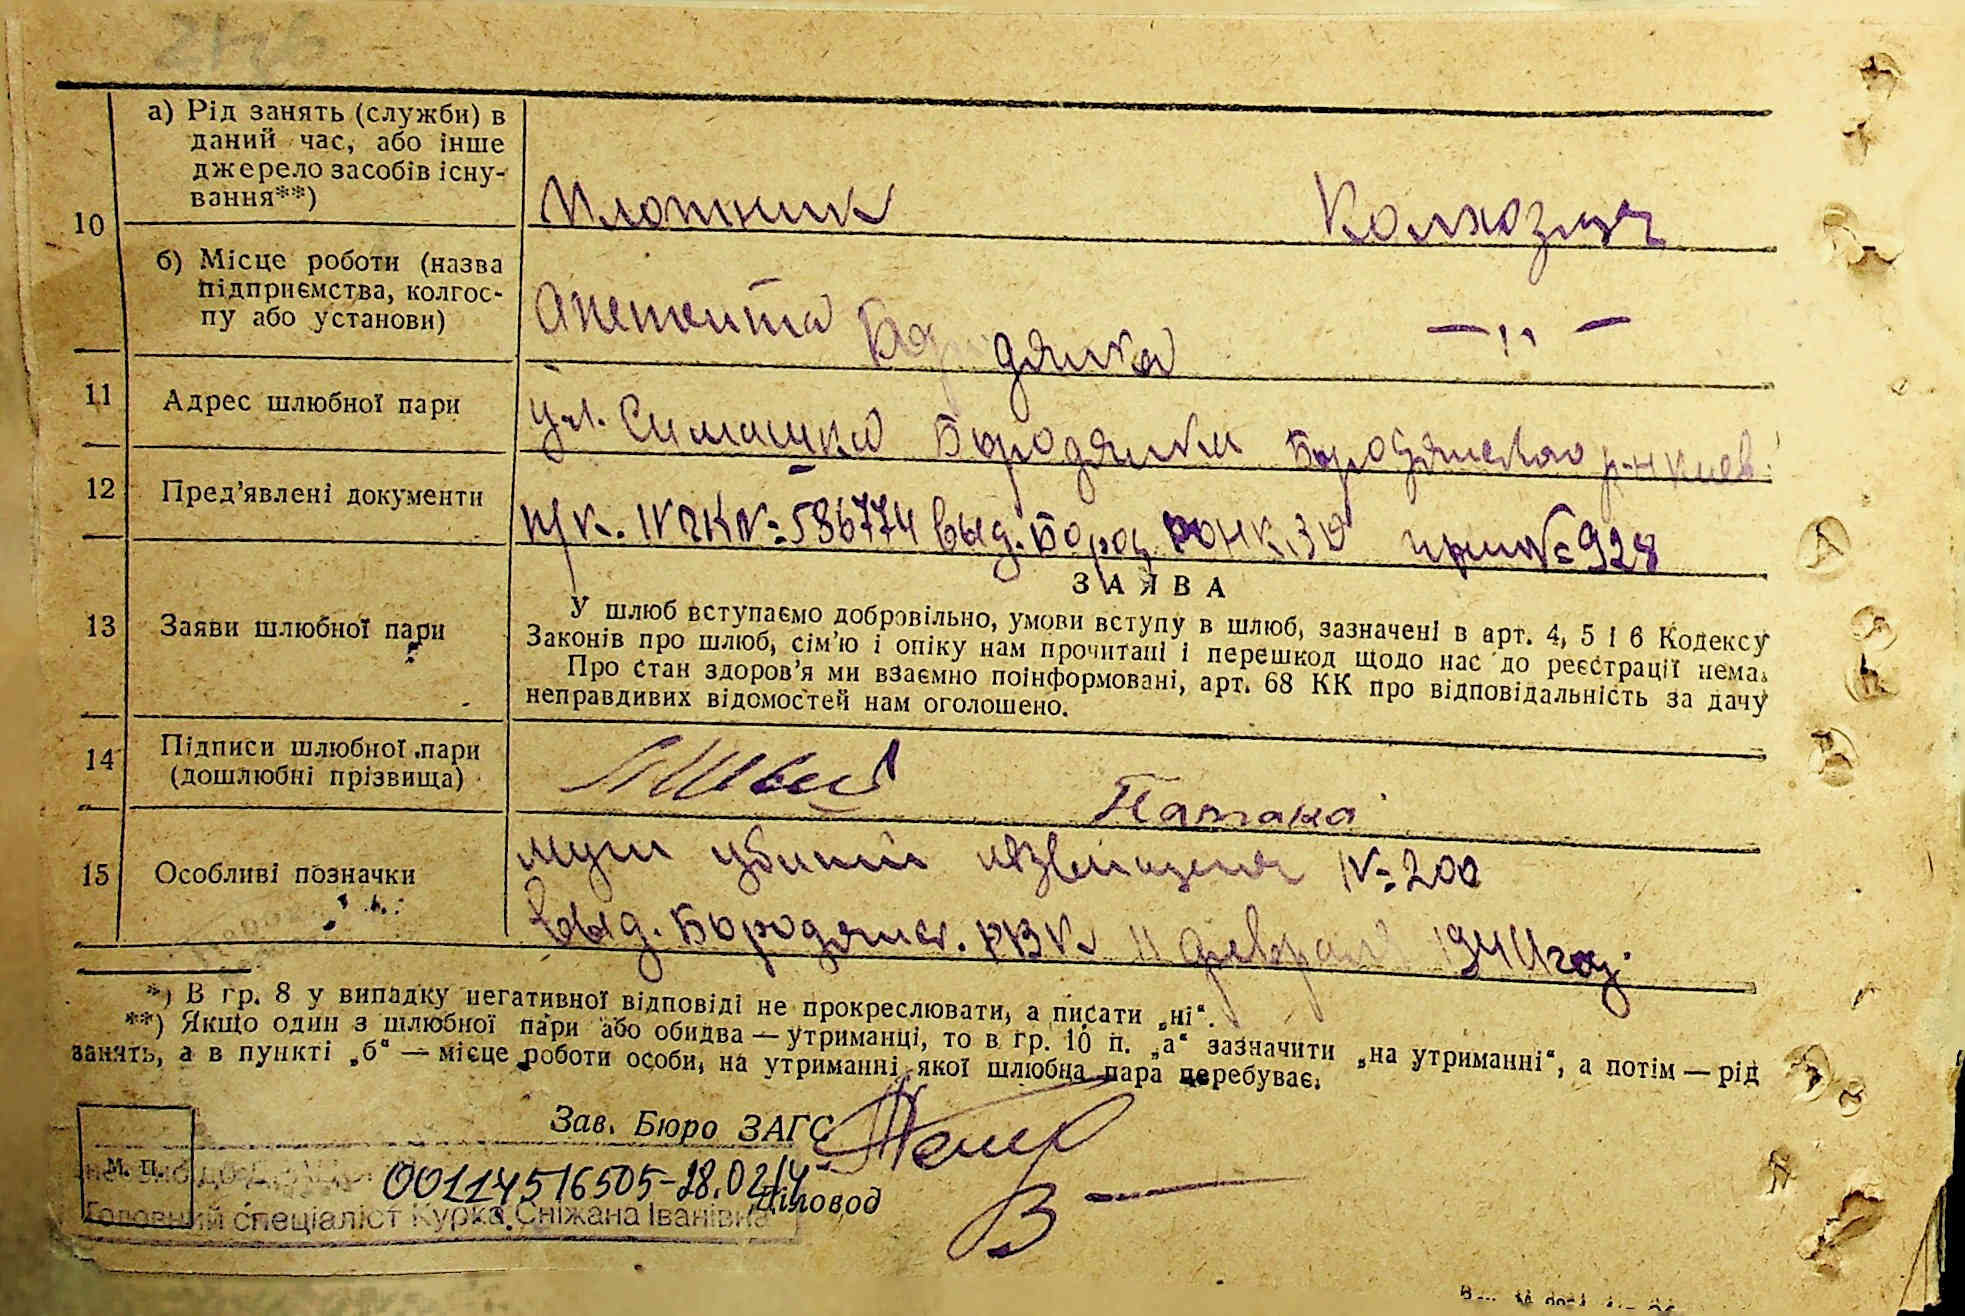 10
а) Рід занять (служби) в
даний час, або інше
джерело засобів існу-
вання**)
Плотник Колхозниця
б) Місце роботи (назва
підприємства, колгос-
пу або установи)
Бородянка — ,, —
11 Адрес шлюбної пари
ул. Симашка Бородянка Бородянского р-н Киев.
12 Пред'явлені документи
№ 586774 выд. Бород. № 928
13 Заяви шлюбної пари
ЗАЯВА
У шлюб вступаємо добровільно, умови вступу в шлюб, зазначені в арт. 4, 5 і 6 Кодексу
Законів про шлюб, сім'ю і опіку нам прочитані і перешкод щодо нас до реєстрації нема.
Про стан здоров'я ми взаємно поінформовані, арт. 68 КК про відповідальність за дачу
неправдивих відомостей нам оголошено.
14 Підписи шлюбної пари
(дошлюбні прізвища)
15 Особливі позначки
муж убитий № 200
выд. Бородянск. РВК 11 феврал 1944 год.
*) В гр. 8 у випадку негативної відповіді не прокреслювати, а писати „ні“.
**) Якщо один з шлюбної пари або обидва — утриманці, то в гр. 10 п. „а“ зазначити „на утриманні“, а потім — рід
занять, а в пункті „б“ — місце роботи особи, на утриманні якої шлюбна пара перебуває.
Зав. Бюро ЗАГС
М. П.
00114516505-28.02/4
Діловод
Головний спеціаліст Курка Сніжана Іванівна